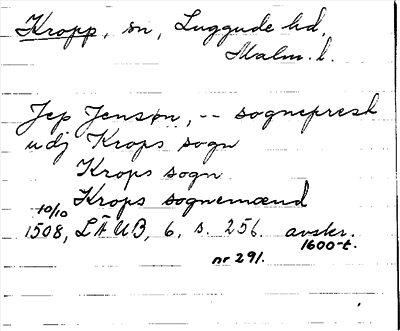 Kropp, sn, Luggude hd,
Malm. l.
Jep Jensøn, -- sogneprest
udj Krops sogn
Krops sogn
Krops sognemænd
10/10
1508, LÄUB, 6, s. 256. avskr.
1600-t.
nr 291.